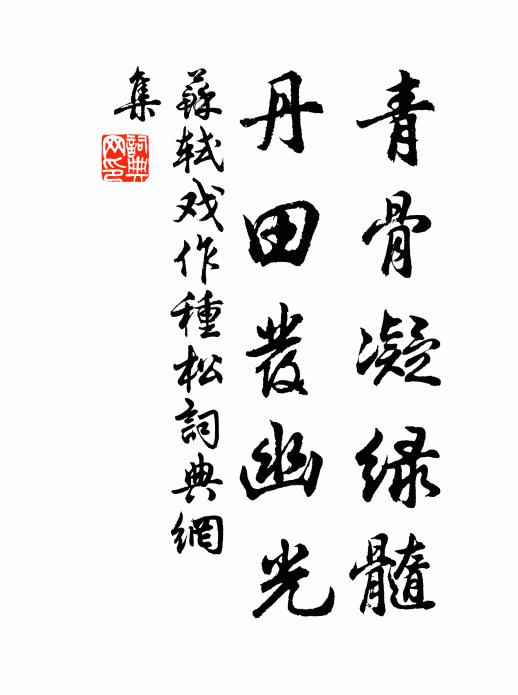 青骨凝绿髓
丹田發幽光
蘇軾戏作種松詞典網
集
詞典
网印